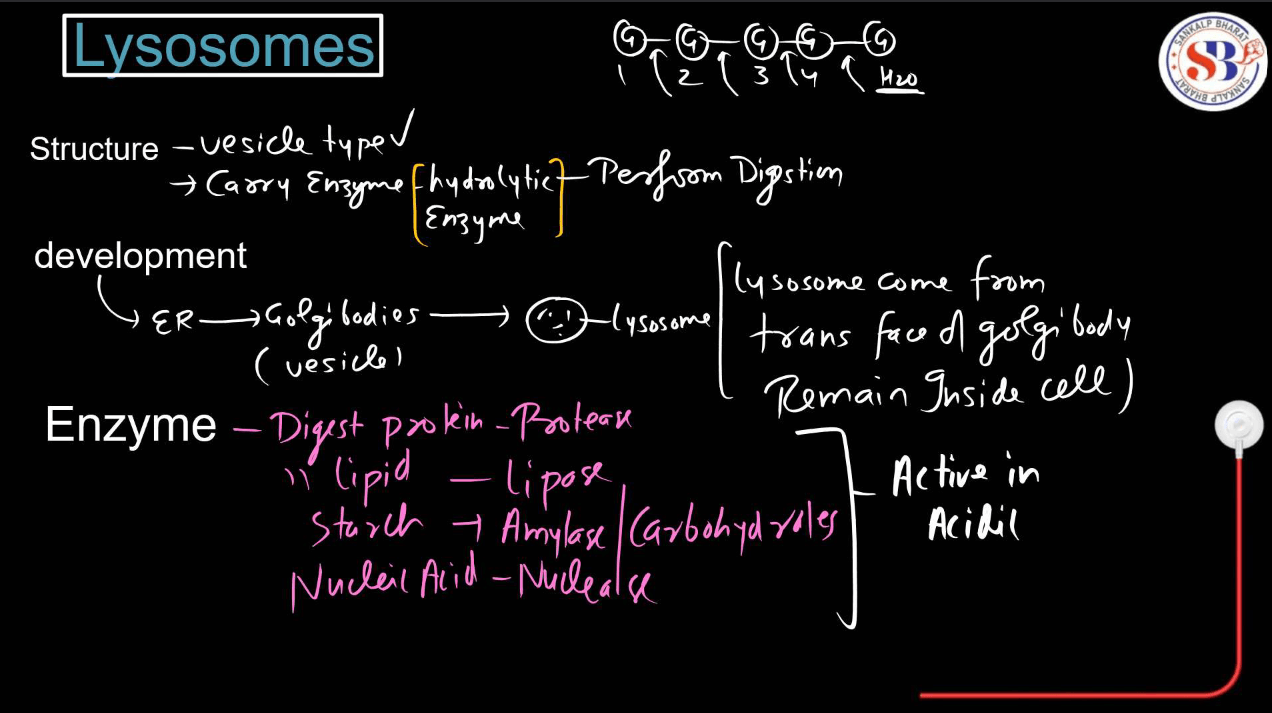 Lysosomes
G-G-G-G-G
1 2 3 4 H2O
SANKALP BHARAT
SB
SANKALP BHARAT
Structure - vesicle type✓
→ Carry Enzyme [hydrolytic Enzyme] - Perform Digestion
development
ER → Golgibodies → lysosome
(vesicle)
lysosome come from
trans face of golgi body
Remain Inside cell)
Enzyme - Digest protein - Protease
" lipid - lipase
Starch → Amylase / Carbohydrales
Nucleic Acid - Nuclease
Active in
Acidic